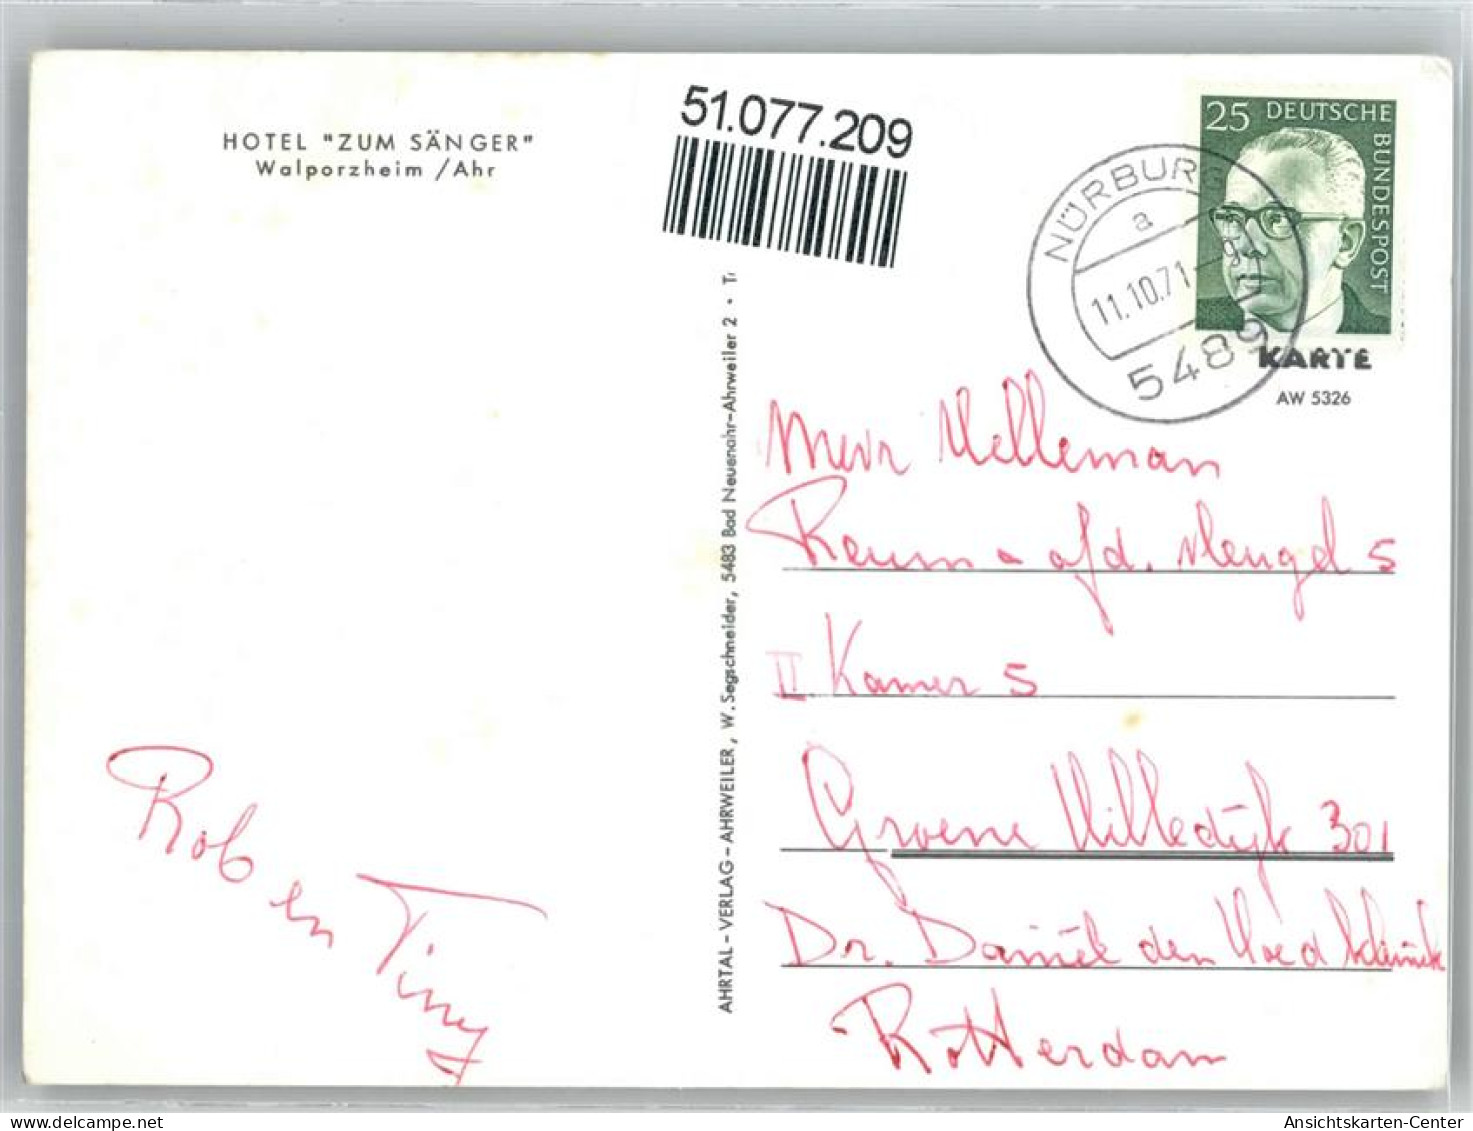 HOTEL "ZUM SÄNGER"
Walporzheim /Ahr
51.077.209
25 DEUTSCHE
BUNDESPOST
NÜRBURG
a
11.10.71
5489
KARTE
AW 5326
AHRTAL-VERLAG-AHRWEILER, W. Segschneider, 5483 Bad Neuenahr-Ahrweiler 2 •
Velleman
afd. Mengel 5
II Kamer 5
Groene Hilledijk 301
Dr. Daniël den Hoed kliniek
Rotterdam
Rob en Tiny
Ansichtskarten-Center